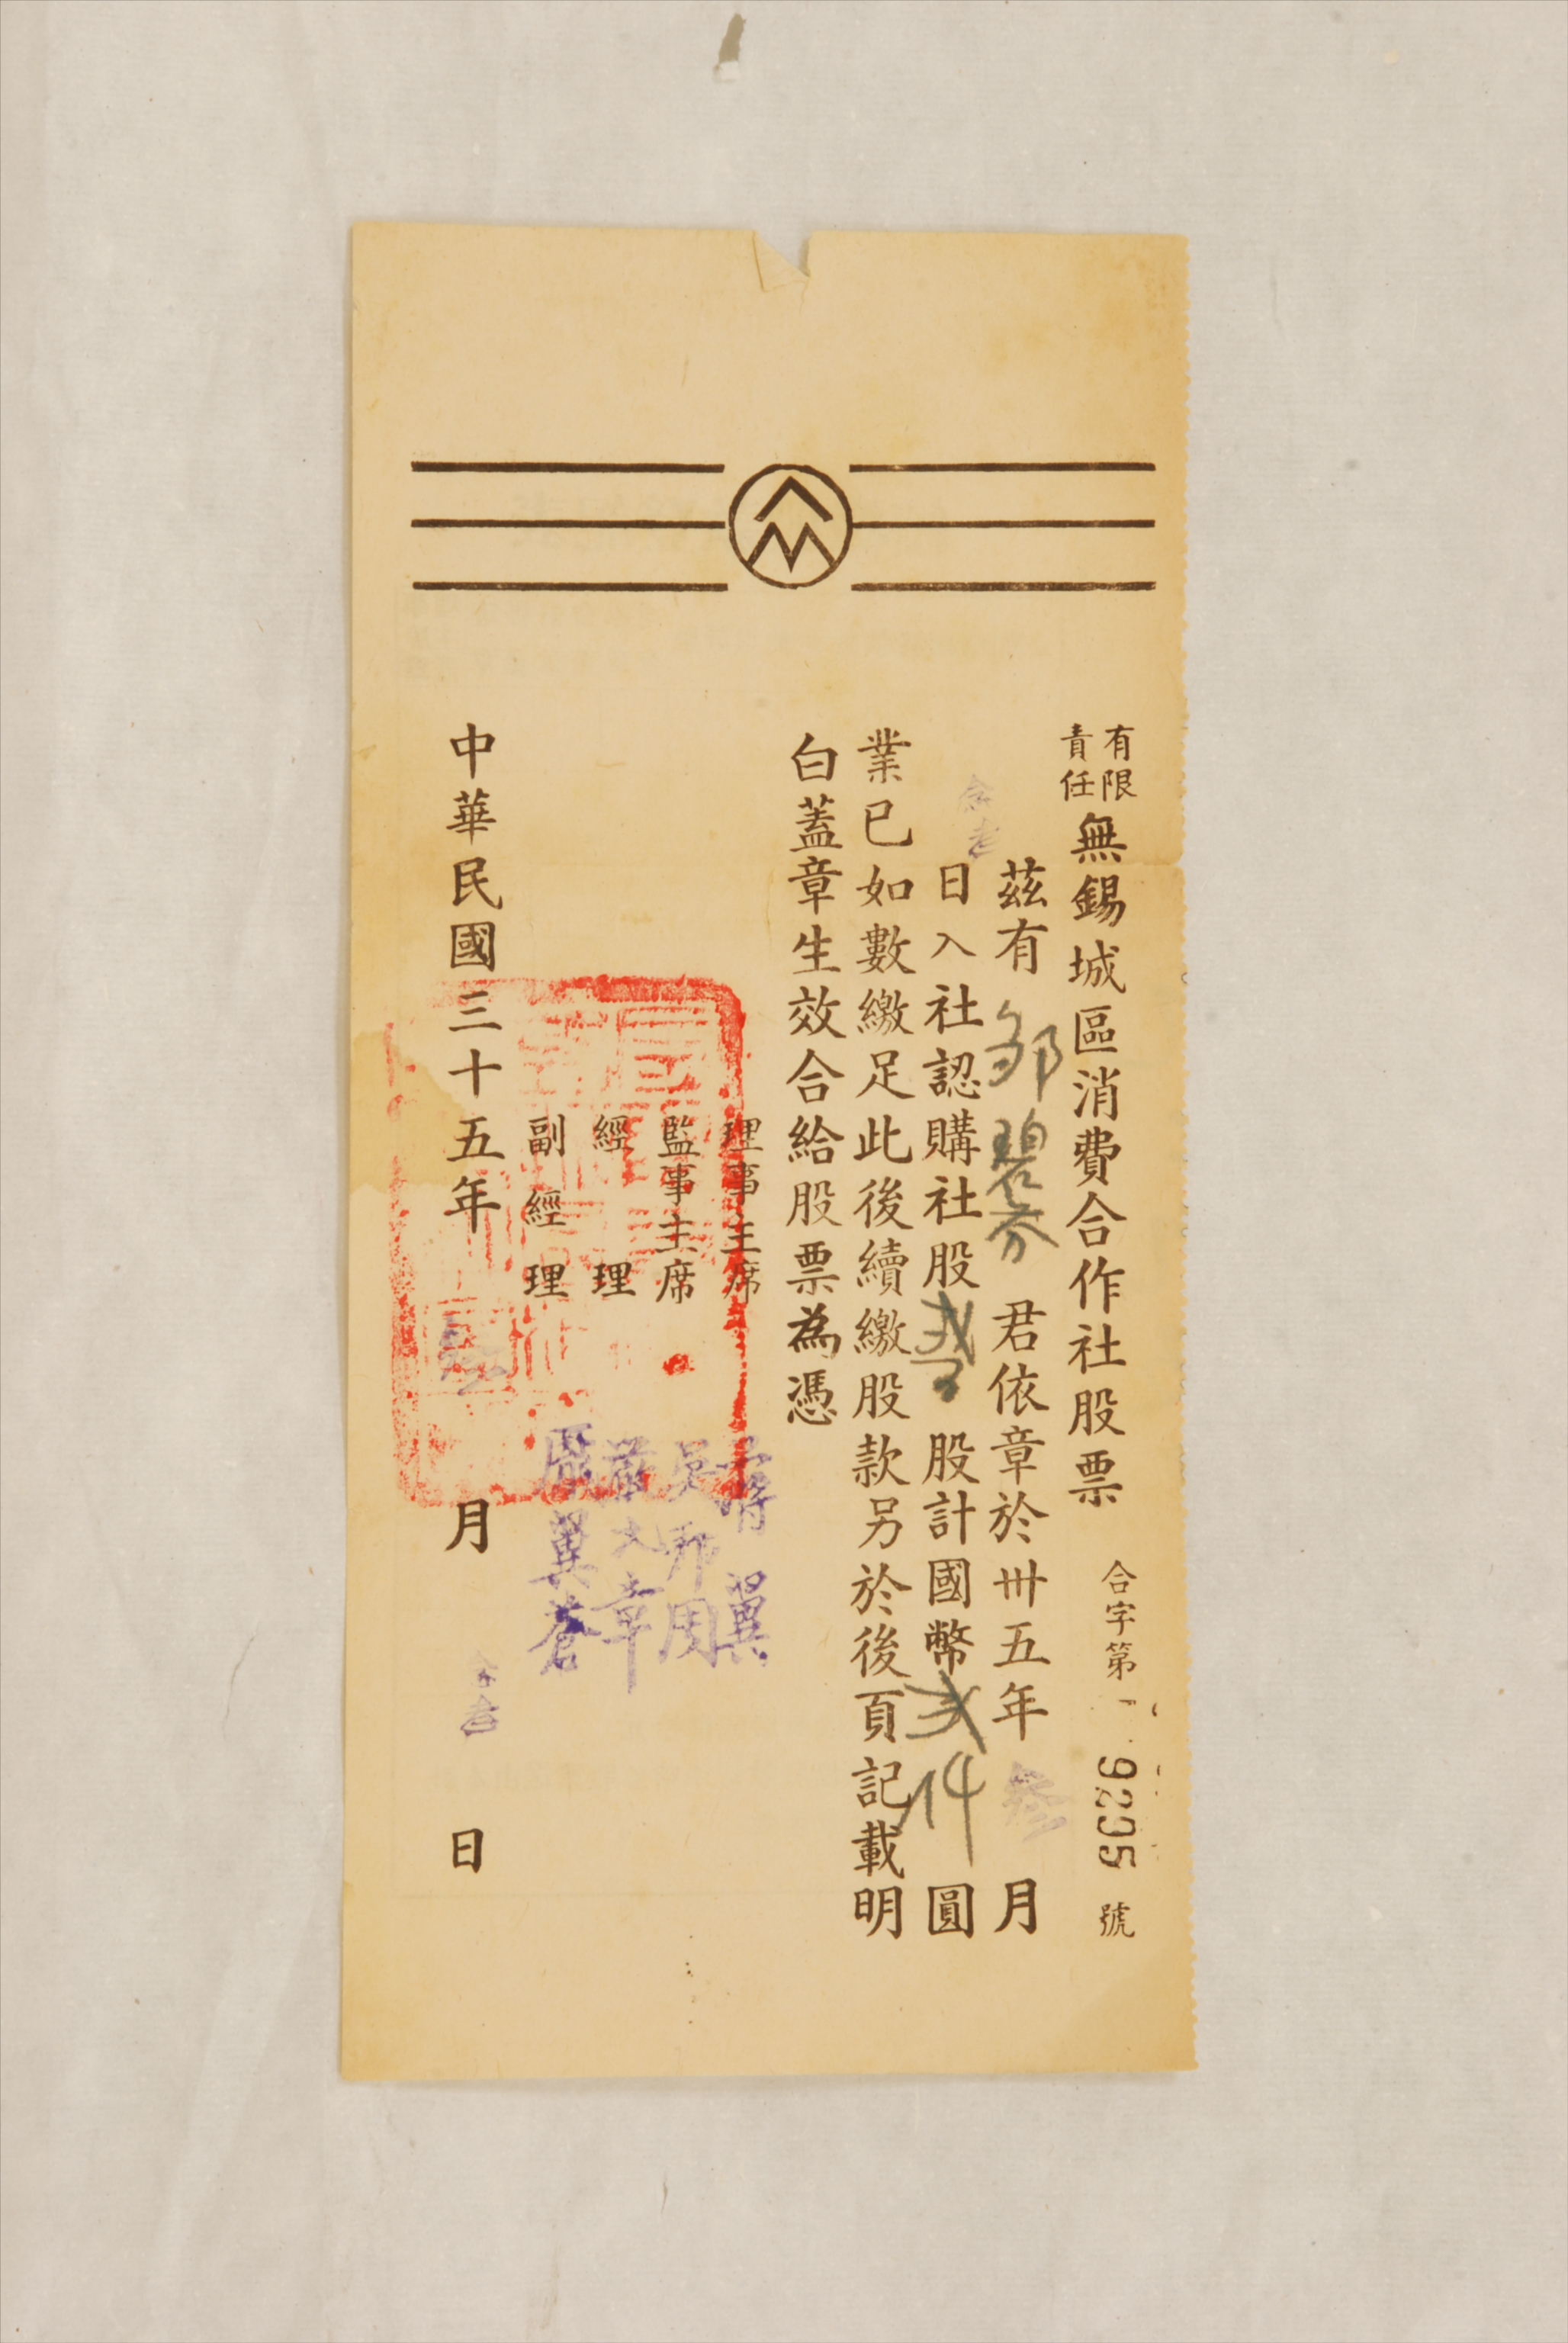 有限責任無錫城區消費合作社股票 合字第 9295 號
茲有鄒碧芬君依章於卅五年叁月
日入社認購社股股計國幣貳仟圓
業已如數繳足此後續繳股款另於後頁記載明
白蓋章生效合給股票為憑
理事主席 蔣翼
監事主席 吳邦周
經理 嚴大章
副經理 翼蒼
中華民國三十五年 月 日